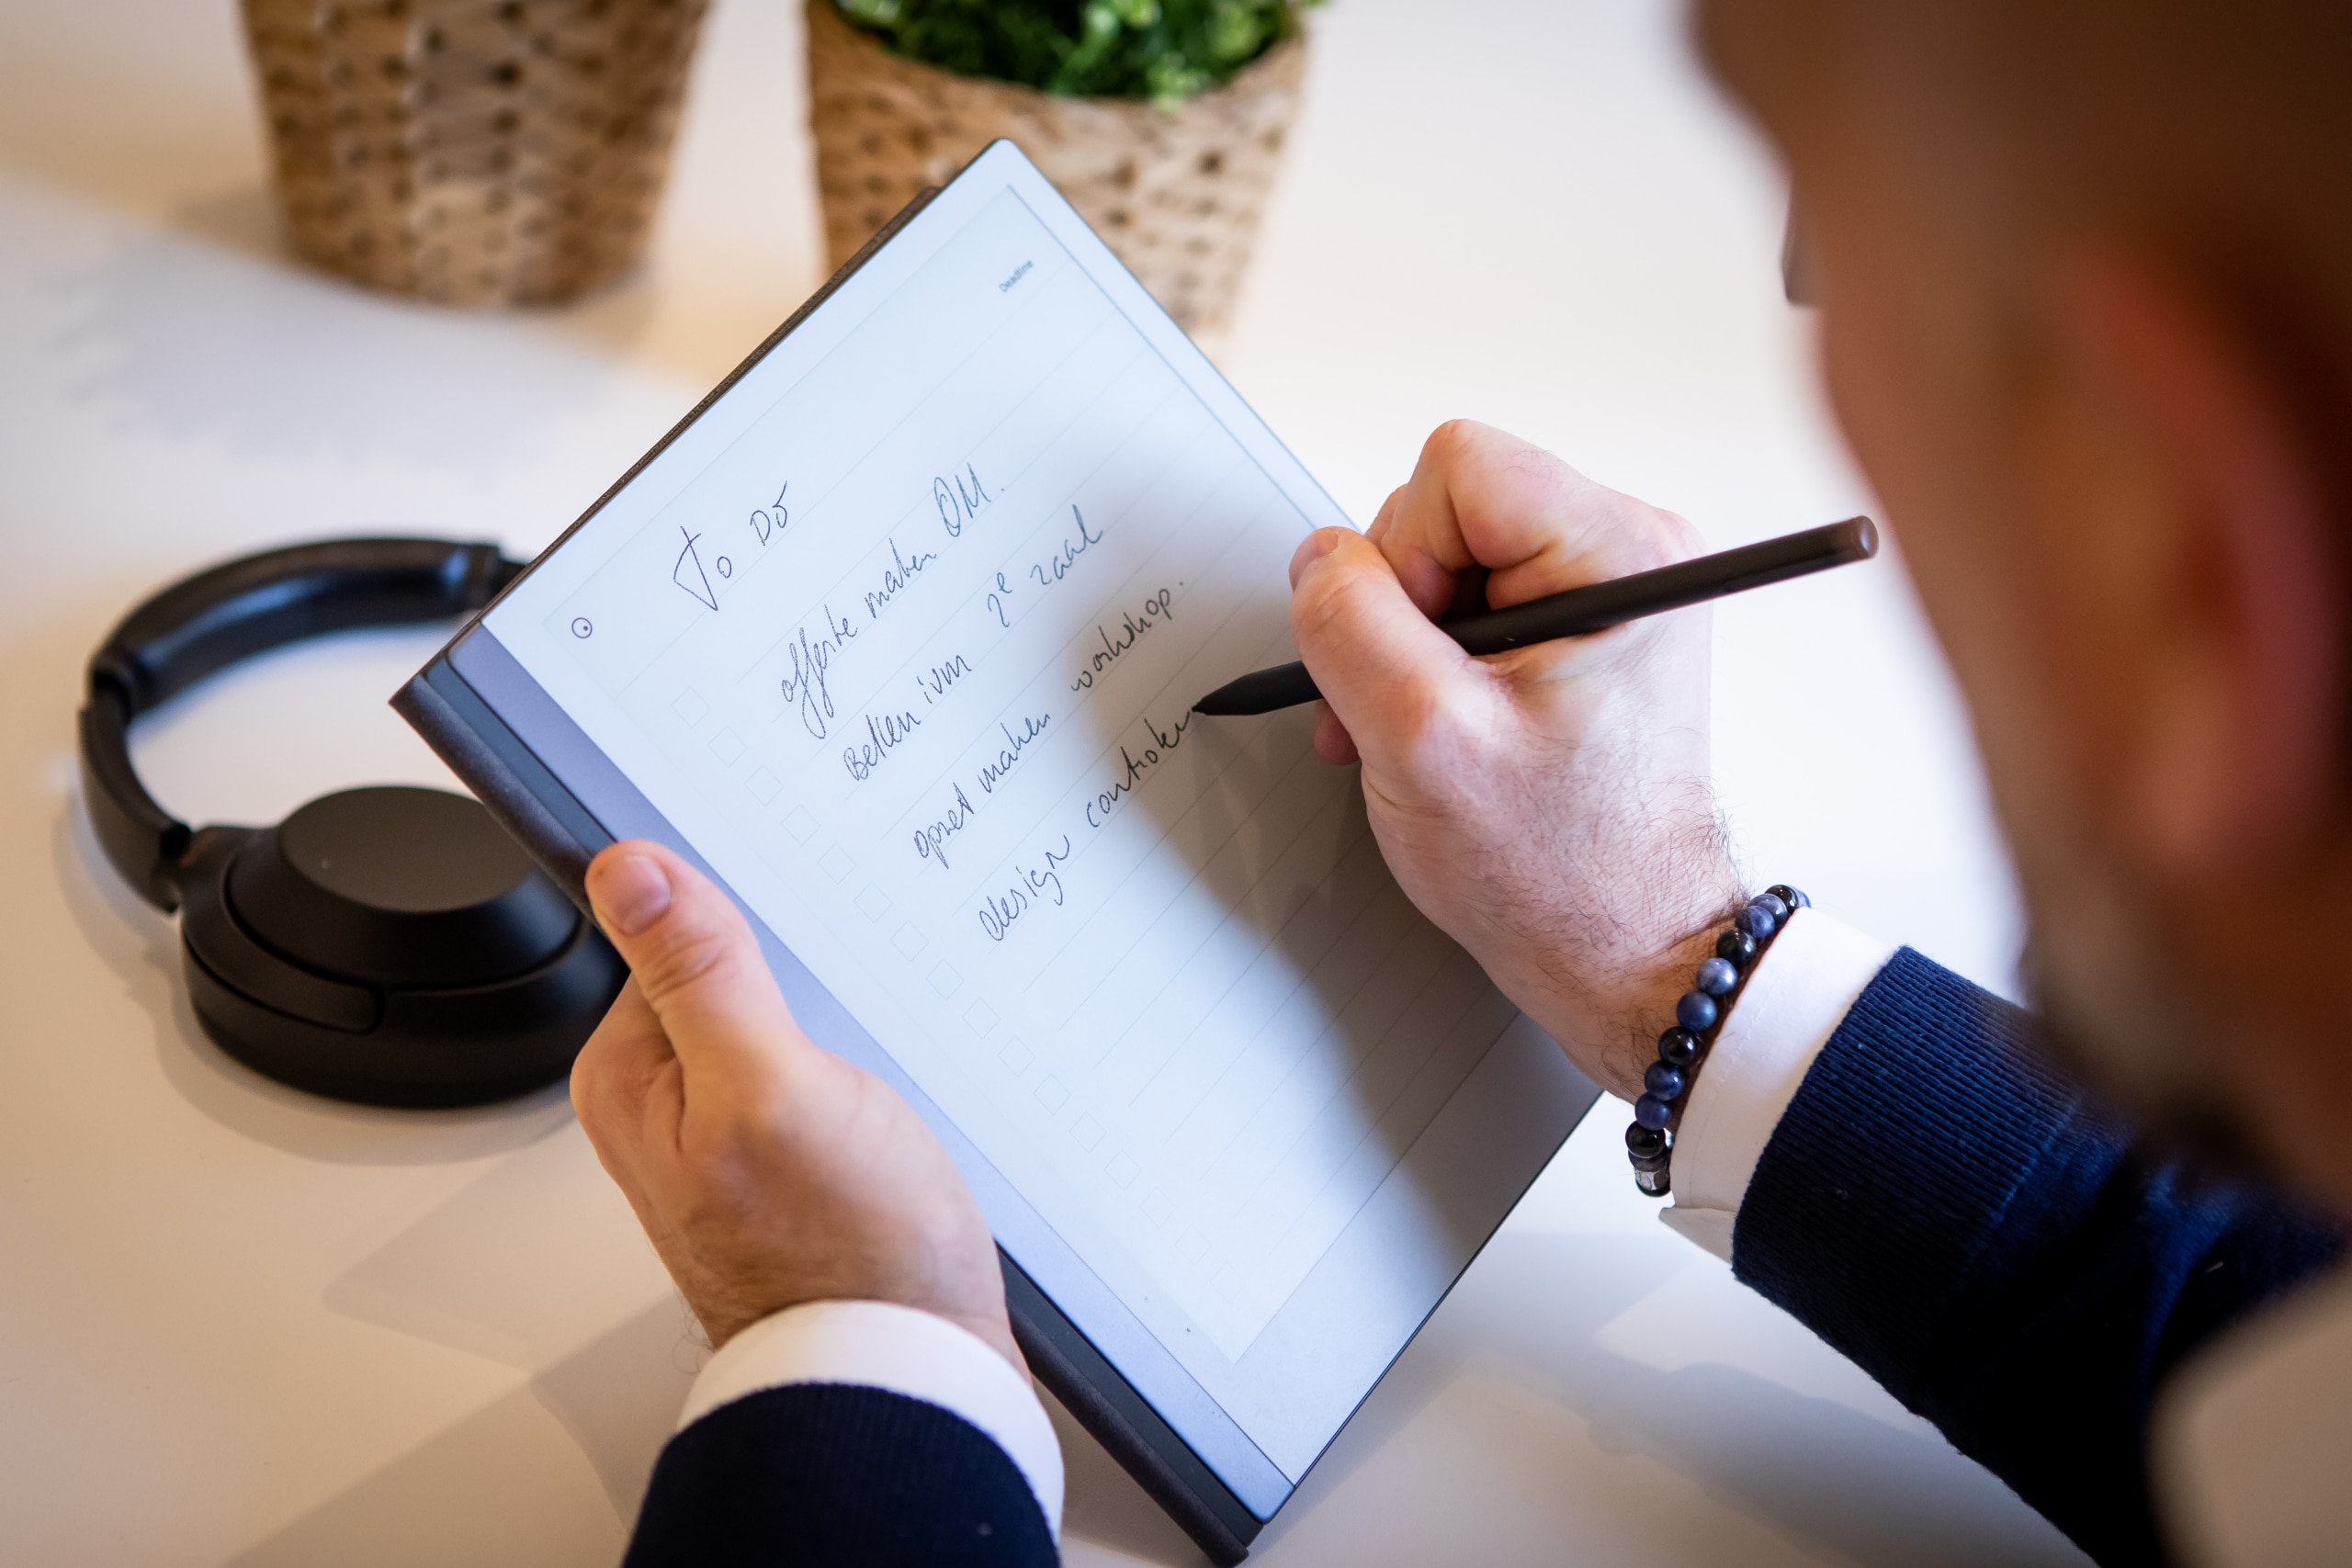 Deadline
To Do
offerte maken OM.
Bellen ivm 2e zaal
opzet maken workshop.
design controleren